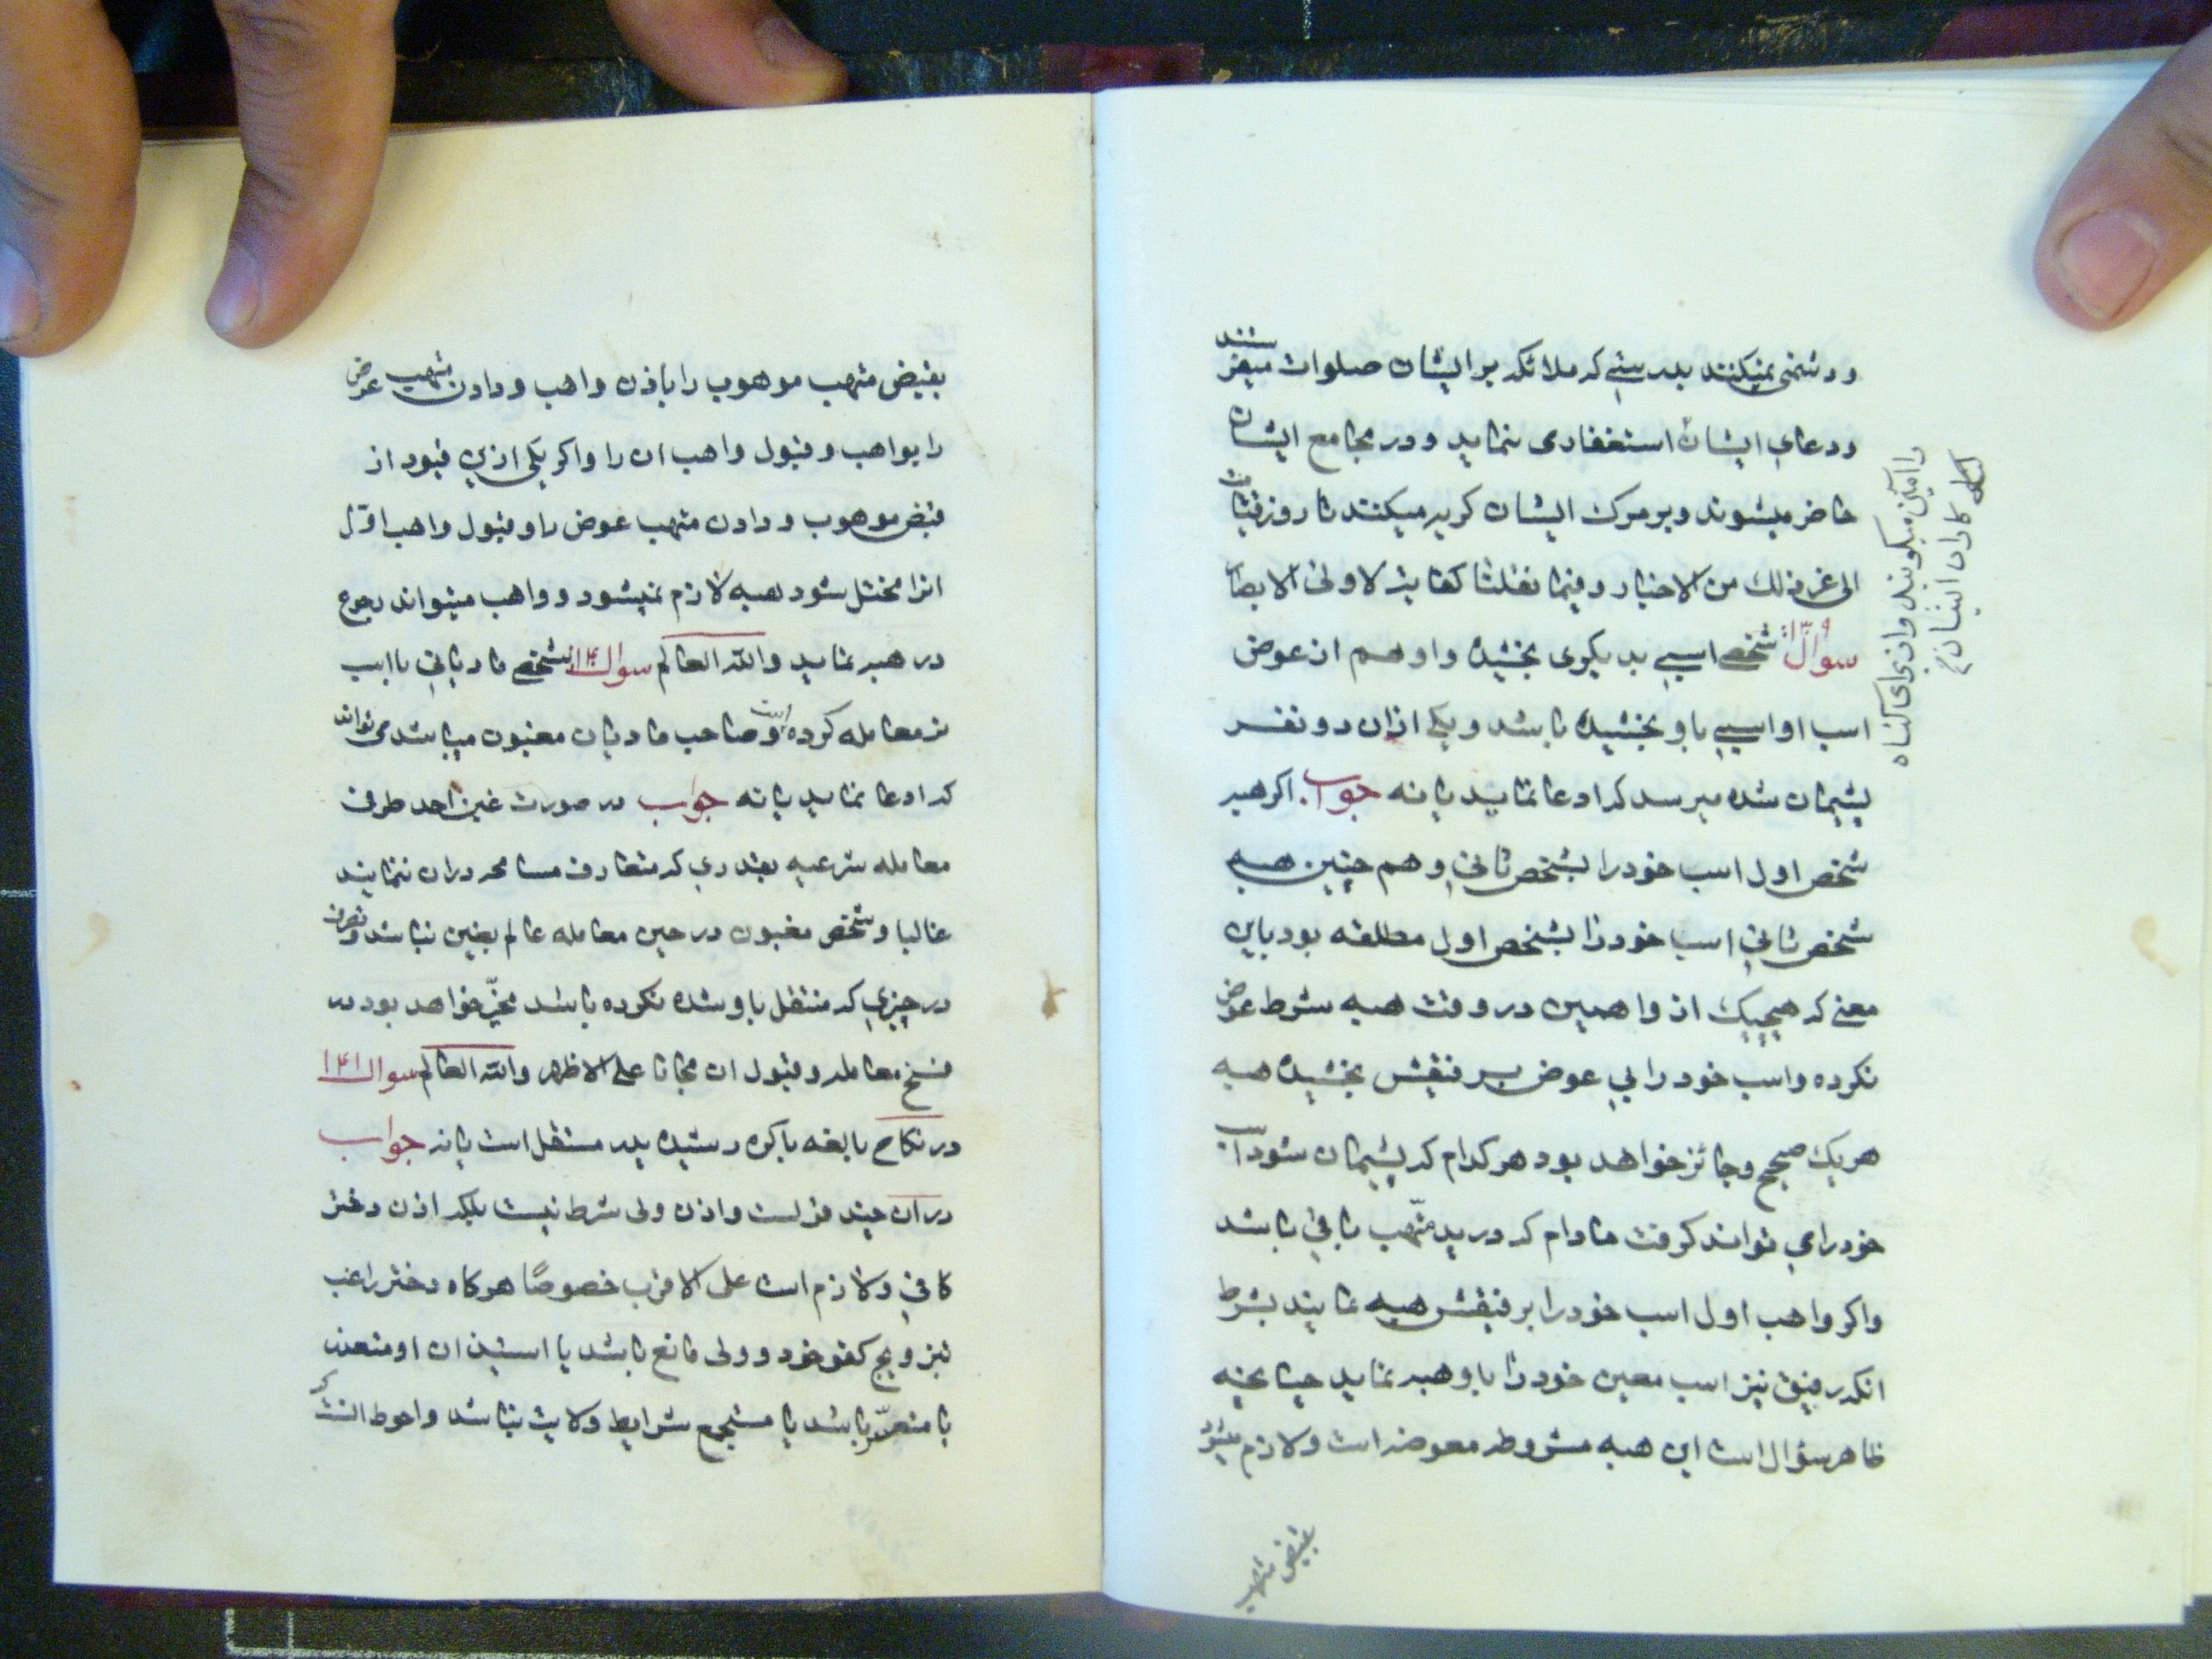 ودشمنی نمیکنند بدرستی که ملائکه بر ایشان صلوات میفرستند
ودعای ایشان استغفاری نماید و در مجامع ایشان
حاضر میشوند و بر مرک ایشان کریه میکنند تا روز قیامت
الی غیر ذلك من الاخبار و فیما نقلنا کفایة لاولی الابصار
سوال ۱۳۹ شخصی اسبی بدیکری بخشیده و او هم از عوض
اسب او اسبی باو بخشیده باشد و یکی از ان دو نفر
پشیمان شده میرسد که ادعا نماید یا نه جواب اکر هبه
شخص اول اسب خود را بشخص ثانی و هم چنین هبه
شخص ثانی اسب خود را بشخص اول مطلقه بود باین
معنی که هیچیک از واهبین در وقت هبه شرط عوض
نکرده و اسب خود را بی عوض برفیقش بخشیده هبه
هر یک صحیح و جائز خواهد بود هر کدام که پشیمان شود اسب
خود رامی تواند کرفت مادام که در ید متّهب باقی باشد
و اکر واهب اول اسب خود را برفیقش هبه نمایند بشرط
انکه رفیق نیز اسب معین خود را باو هبه نماید چنانچه
ظاهر سؤال است این هبه مشروطه معوضه است و لازم میشود
بقبض متهب
را آمین میکویند و از برای کناه
کاران ایشان
بقبض متهب موهوب را باذن واهب و دادن متهب عوض
را بواهب و قبول واهب ان را و اکر یکی ازین قیود از
قبض موهوب و دادن متهب عوض را و قبول واهب اوّل
انرا مختل شود هبه لازم نمیشود و واهب میتواند رجوع
در هبه نماید والله العالم سوال ۱۴۰ شخصی مادیانی با اسب
نر معامله کرده است و صاحب مادیان مغبون میباشد می تواند
که ادعا نماید یا نه جواب در صورت غبن احد طرف
معامله شرعیه بقدری که متعارف مسامحه در ان ننمایند
غالبا و شخص مغبون در حین معامله عالم بغبن نباشد و تصرف
در چیزی که منتقل باو شده نکرده باشد مخیّر خواهد بود در
فسخ معامله و قبول ان مجانا علی الاظهر والله العالم سوال ۱۴۱
در نکاح بالغه باکره رشیده پدر مستقل است یا نه جواب
در ان چند قول است و اذن ولی شرط نیست بلکه اذن دختر
کافی و لازم است علی الاقرب خصوصًا هرکاه دختر راغب
بتزویج کفو خود و ولی مانع باشد یا استیذان او متعذر
یا متعسّر باشد یا مستجمع شرایط ولایت نباشد و احوط انست که